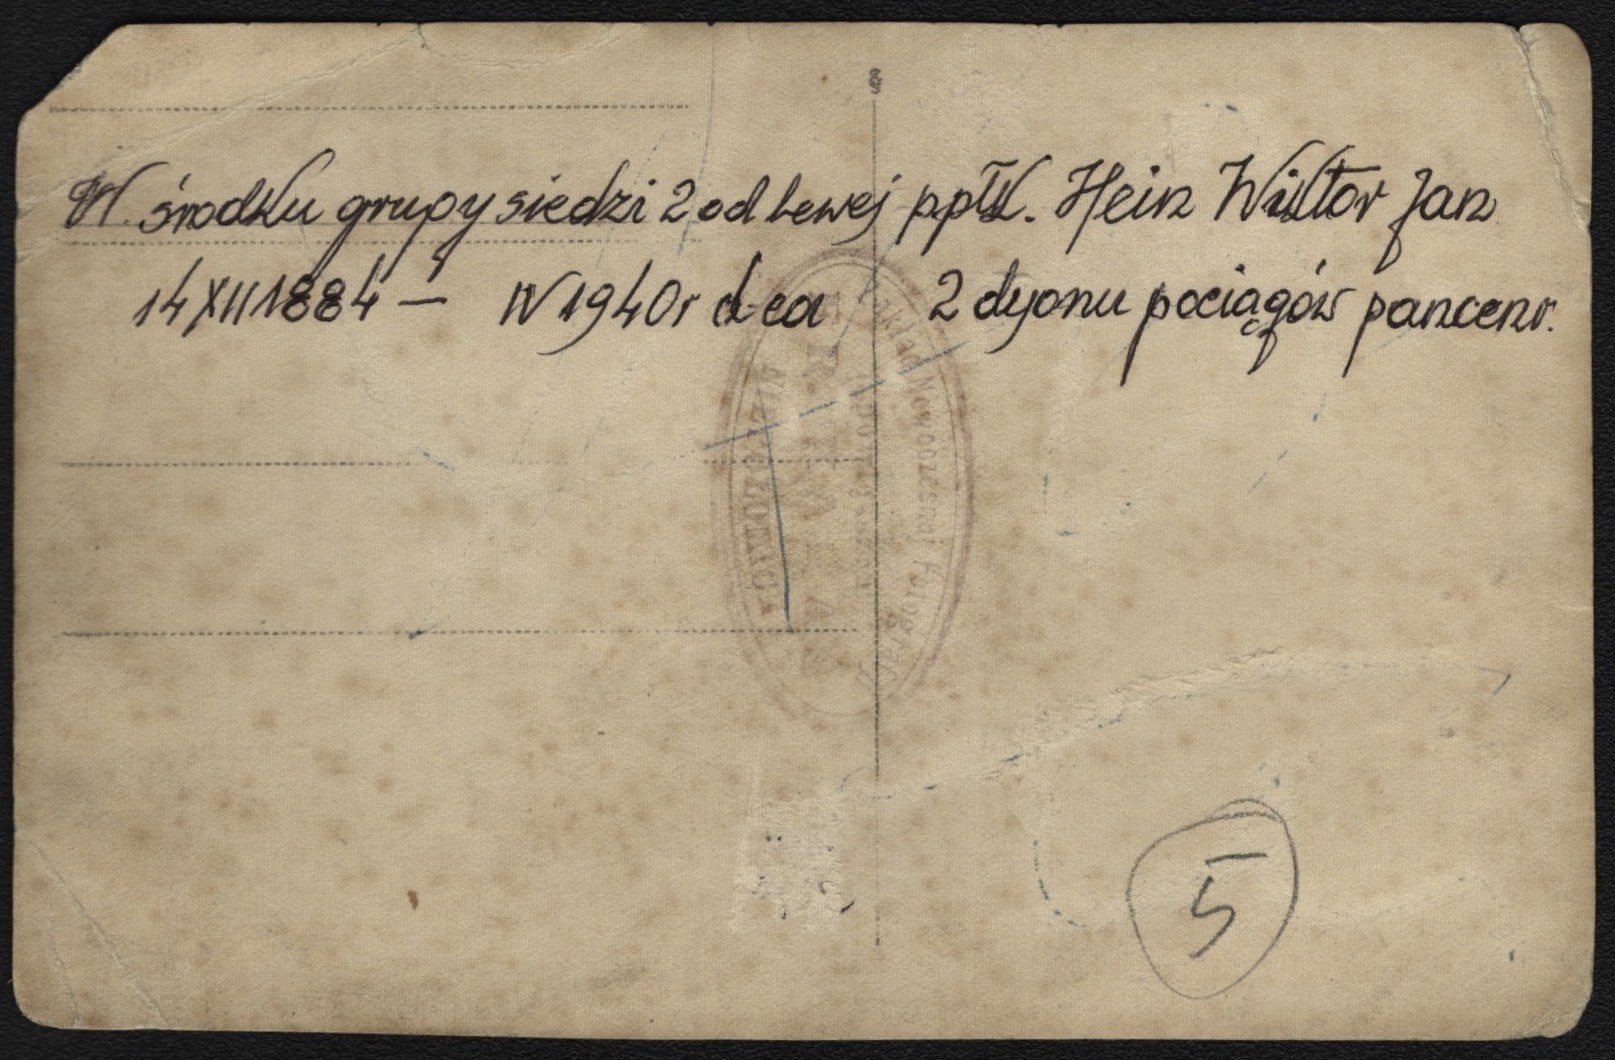 W środku grupy siedzi 2 od lewej ppłk. Hein Wiktor Jan
14 XII 1884 — W 1940r d-ca 2 dyonu pociągów pancern.
Zakład Nowoczesnej Fotografji
5